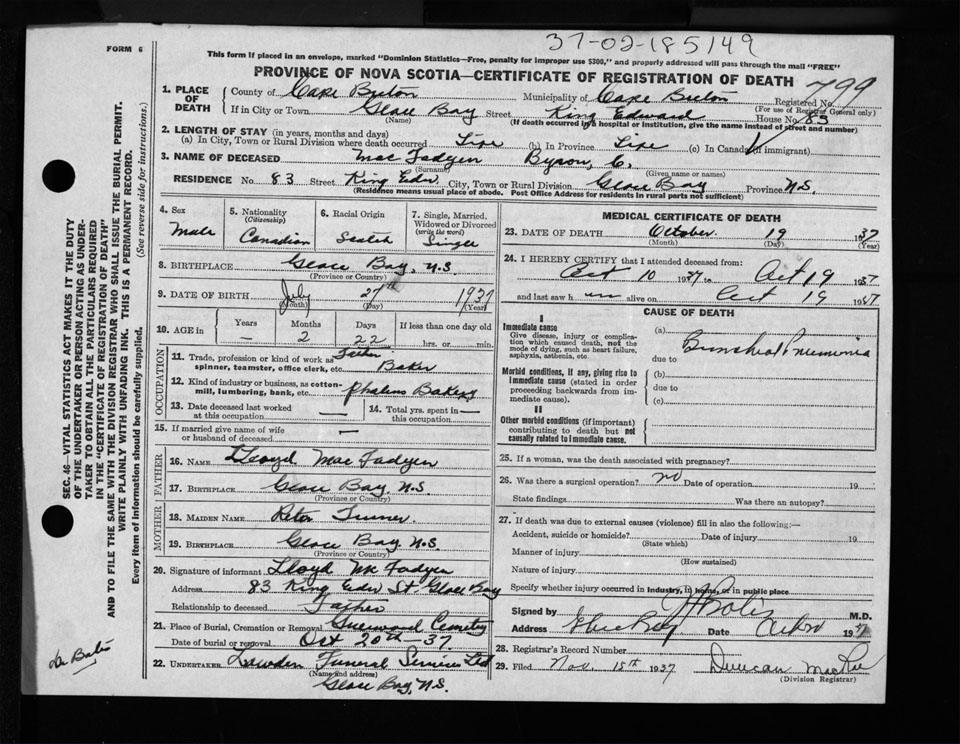 37-02-185149
FORM 6
This form if placed in an envelope, marked "Dominion Statistics—Free, penalty for improper use $300," and properly addressed will pass through the mail "FREE"
PROVINCE OF NOVA SCOTIA—CERTIFICATE OF REGISTRATION OF DEATH
799
1. PLACE OF DEATH
County of Cape Breton Municipality of Cape Breton Registered No.
(For use of Registrar General only)
If in City or Town Glace Bay Street King Edward House No. 83
(Name) (If death occurred in a hospital or institution, give the name instead of street and number)
2. LENGTH OF STAY (in years, months and days)
(a) In City, Town or Rural Division where death occurred Life (b) In Province Life (c) In Canada (if immigrant)
3. NAME OF DECEASED Mac Fadyen Byron, C.
(Surname) (Given name or names)
RESIDENCE No. 83 Street King Edw. City, Town or Rural Division Glace Bay Province N.S.
(Residence means usual place of abode. Post Office Address for residents in rural parts not sufficient)
4. Sex
Male
5. Nationality
(Citizenship)
Canadian
6. Racial Origin
Scotch
7. Single, Married, Widowed or Divorced
(write the word)
Single
8. BIRTHPLACE Glace Bay, N.S.
(Province or Country)
9. DATE OF BIRTH July 27th 1937
(Month) (Day) (Year)
10. AGE in Years Months Days If less than one day old
— 2 22 hrs. or min.
OCCUPATION
11. Trade, profession or kind of work as Father
spinner, teamster, office clerk, etc. Baker
12. Kind of industry or business, as cotton-
mill, lumbering, bank, etc. Bakery
13. Date deceased last worked
at this occupation —
14. Total yrs. spent in
this occupation —
15. If married give name of wife
or husband of deceased —
FATHER
16. NAME Lloyd Mac Fadyen
17. BIRTHPLACE Glace Bay, N.S.
(Province or Country)
MOTHER
18. MAIDEN NAME Turner
19. BIRTHPLACE Glace Bay N.S.
(Province or Country)
20. Signature of informant Lloyd Mc Fadyen
Address 83 King Edw. St Glace Bay
Relationship to deceased Father
21. Place of Burial, Cremation or Removal Cemetery
Date of burial or removal Oct 20th 37.
22. UNDERTAKER Funeral Service Ltd
(Name and address)
Glace Bay, N.S.
MEDICAL CERTIFICATE OF DEATH
23. DATE OF DEATH October 19 1937
(Month) (Day) (Year)
24. I HEREBY CERTIFY that I attended deceased from:
Oct 10 1937 to Oct 19 1937
and last saw him alive on Oct 19 1937
CAUSE OF DEATH
I
Immediate cause
Give disease, injury or complication which caused death, not the mode of dying, such as heart failure, asphyxia, asthenia, etc.
(a) Bronchial Pneumonia
due to
Morbid conditions, if any, giving rise to immediate cause (stated in order proceeding backwards from immediate cause).
(b)
due to
(c)
II
Other morbid conditions (if important) contributing to death but not causally related to immediate cause.
25. If a woman, was the death associated with pregnancy?
26. Was there a surgical operation? no Date of operation 19
State findings Was there an autopsy?
27. If death was due to external causes (violence) fill in also the following:—
Accident, suicide or homicide? Date of injury 19
(State which)
Manner of injury
(How sustained)
Nature of injury
Specify whether injury occurred in industry, in home, or in public place
Signed by M.D.
Address Glace Bay Date 1937
28. Registrar's Record Number
29. Filed Nov. 15th 1937 Duncan MacRae
(Division Registrar)
SEC. 46—VITAL STATISTICS ACT MAKES IT THE DUTY
OF THE UNDERTAKER OR PERSON ACTING AS UNDER-
TAKER TO OBTAIN ALL THE PARTICULARS REQUIRED
IN THE "CERTIFICATE OF REGISTRATION OF DEATH"
AND TO FILE THE SAME WITH THE DIVISION REGISTRAR WHO SHALL ISSUE THE BURIAL PERMIT.
WRITE PLAINLY WITH UNFADING INK. THIS IS A PERMANENT RECORD.
Every item of information should be carefully supplied. (See reverse side for instructions.)